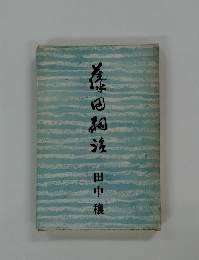 藤田嗣治
田中穰